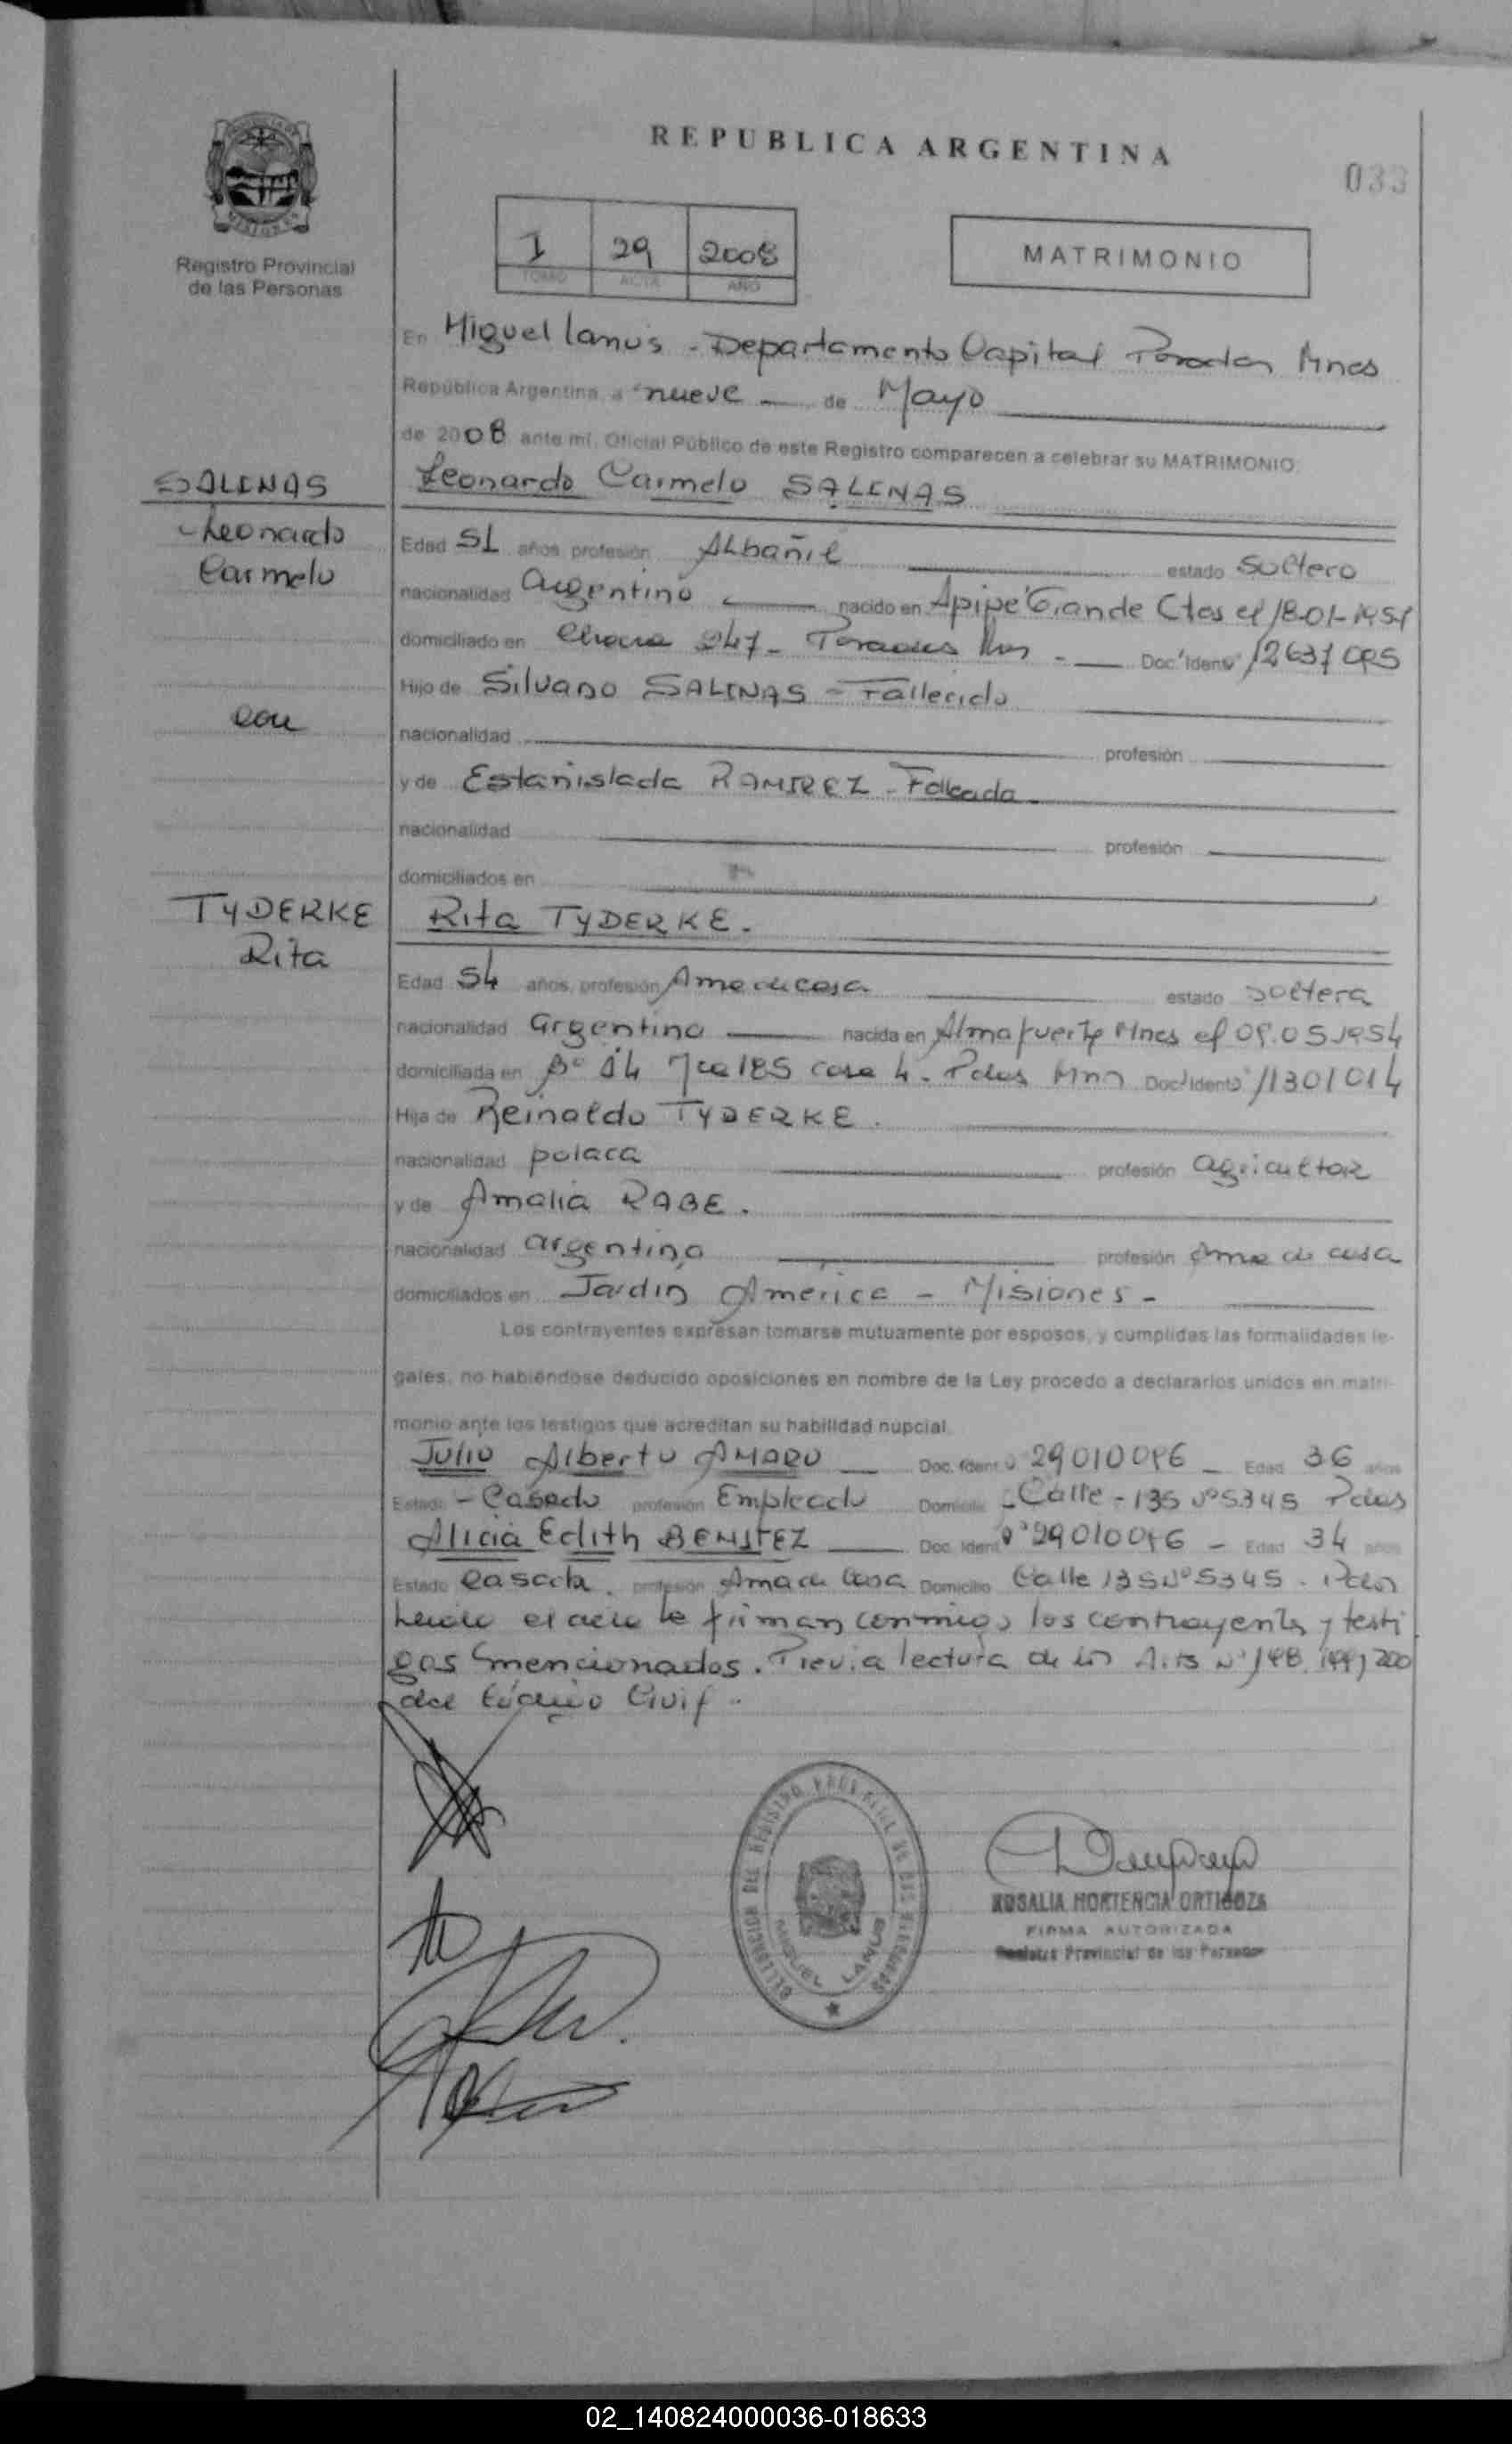 REPUBLICA ARGENTINA
033
Registro Provincial
de las Personas
1 29 2008
TOMO ACTA AÑO
MATRIMONIO
En Miguel Lanus - Departamento Capital Posadas Mnes
República Argentina, a nueve de Mayo
de 2008 ante mi, Oficial Público de este Registro comparecen a celebrar su MATRIMONIO:
SALINAS
Leonardo
Carmelo
con
TYDERKE
Rita
Leonardo Carmelo SALINAS
Edad 51 años, profesión Albañil estado Soltero
nacionalidad argentino nacido en Apipe Grande Ctes el 18-01-1957
domiciliado en 247 - Posadas Mns - Doc. Ident. 12637
Hijo de Silvano SALINAS - Fallecido
nacionalidad profesión
y de Estañislada RAMIREZ - Fallecida
nacionalidad profesión
domiciliados en
Rita TYDERKE.
Edad 54 años, profesión Ama de casa estado soltera
nacionalidad argentina nacida en Almafuerte Mnes el 09.05.1954
domiciliada en Bº casa 4. Pdas Mns Doc. Ident. 11301014
Hija de Reinaldo TYDERKE.
nacionalidad polaca profesión agricultor
y de Amalia RABE.
nacionalidad argentina profesión Ama de casa
domiciliados en Jardin América - Misiones -
Los contrayentes expresan tomarse mutuamente por esposos, y cumplidas las formalidades le-
gales, no habiéndose deducido oposiciones en nombre de la Ley procedo a declararlos unidos en matri-
monio ante los testigos que acreditan su habilidad nupcial.
Julio Alberto AMARO Doc. Ident. 29010096 - Edad 36 años
Estado - Casado profesión Empleado Domicilio - Calle - 135 Nº 5345 Pdas
Alicia Edith BENITEZ Doc. Ident. 29010096 - Edad 34 años
Estado Casada. profesión Ama de Casa Domicilio Calle 135 Nº 5345. Pdas
Leido el acta la firman conmigo los contrayentes y testi
gos mencionados. Previa lectura de los Arts Nº 198, 199, 200
del Código Civil.
DELEGACION DEL REGISTRO PROVINCIAL DE LAS PERSONAS
MIGUEL LANUS
ROSALIA HORTENCIA ORTIGOZA
FIRMA AUTORIZADA
Registro Provincial de las Personas
02_140824000036-018633